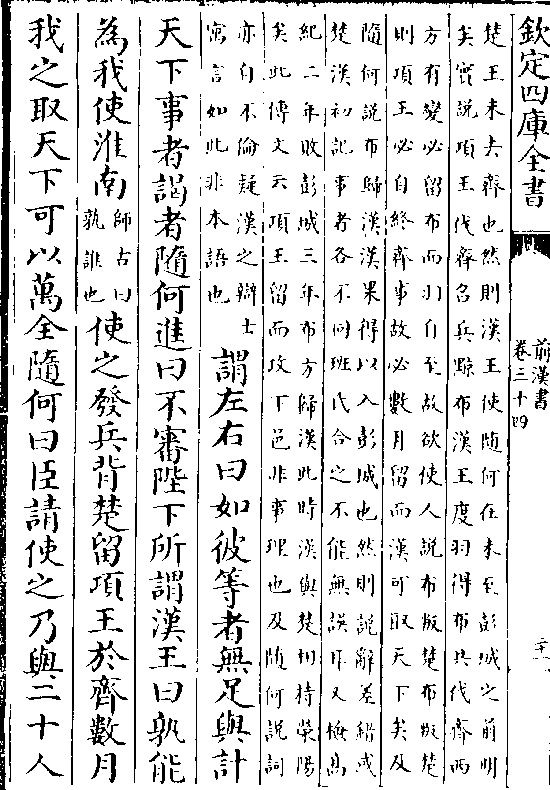 欽定四庫全書
前漢書
卷三十四
二十一
楚王未去齊也然則漢王使隨何在未至彭城之前明
矣實説項王伐齊召兵黥布漢王度羽得布共伐齊西
方有變必留布而羽自至故欲使人説布叛楚布叛楚
則項王必自終齊事故必數月留而漢可取天下矣及
隨何説布歸漢漢果得以入彭城也然則説辭差繆或
楚漢初記事者各不同班氏合之不能無誤耳又檢高
紀二年敗彭城三年布方歸漢此時漢與楚相持滎陽
矣此傳文云項王留而攻下邑非事理也及隨何説詞
亦自不倫疑漢之辯士
寓言如此非本語也
謂左右曰如彼等者無足與計
天下事者謁者隨何進曰不審陛下所謂漢王曰孰能
為我使淮南
師古曰
孰誰也
使之發兵背楚留項王於齊數月
我之取天下可以萬全隨何曰臣請使之乃與二十人